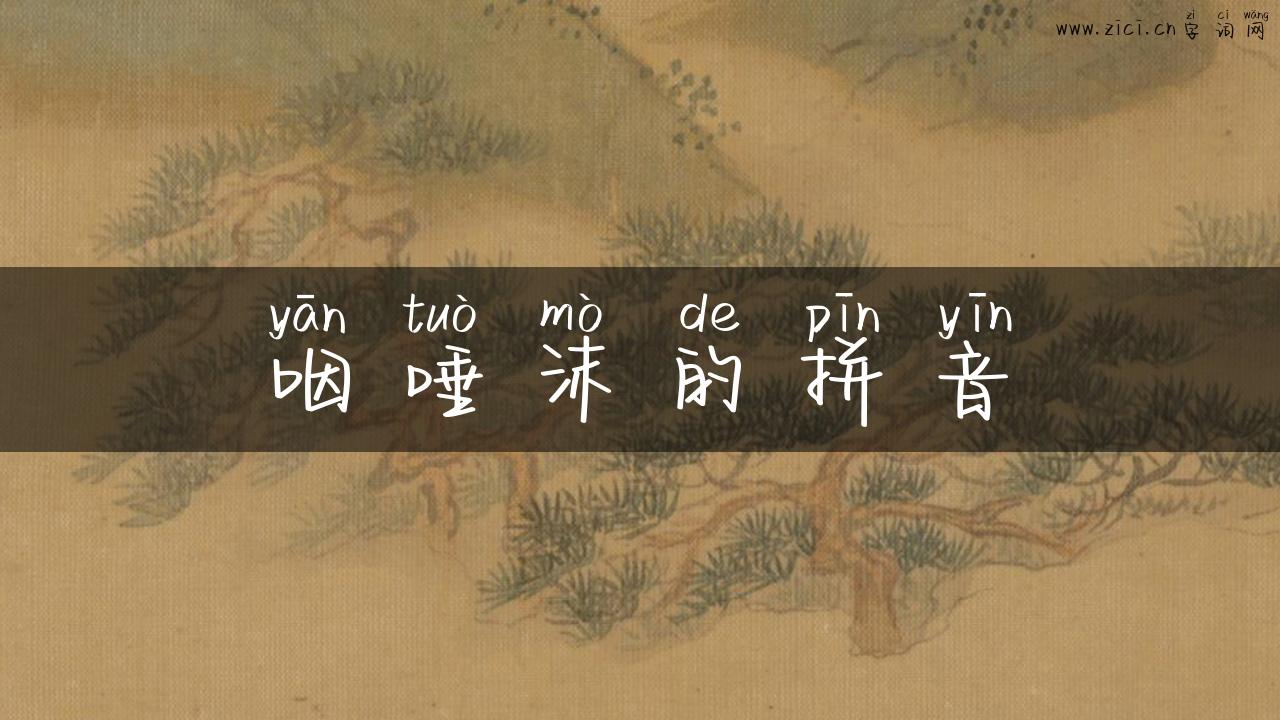 zì cí wǎng
www.zici.cn 字词网
yān tuò mò de pīn yīn
咽唾沫的拼音